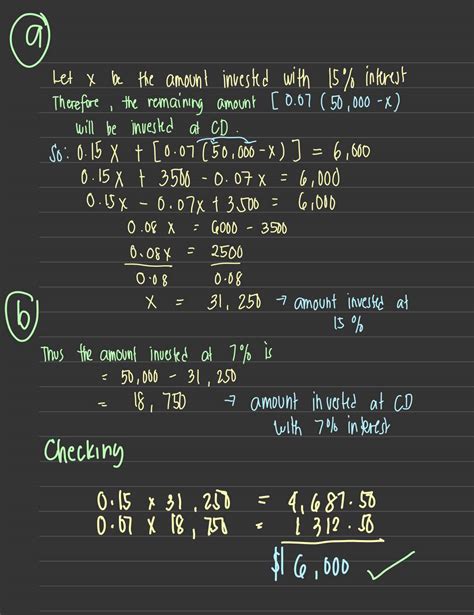 a
Let x be the amount invested with 15% interest
Therefore, the remaining amount [0.07 (50,000 - x)
will be invested at CD.
So: 0.15 x + [0.07 (50,000 - x)] = 6,000
0.15 x + 3500 - 0.07x = 6,000
0.15x - 0.07x + 3500 = 6,000
0.08 x = 6000 - 3500
0.08x = 2500
0.08 0.08
b
x = 31,250 → amount invested at
15 %
Thus the amount invested at 7% is
= 50,000 - 31,250
= 18,750 → amount invested at CD
with 7% interest
Checking
0.15 x 31,250 = 4,687.50
0.07 x 18,750 = 1 312.50
$ 6,000 ✓